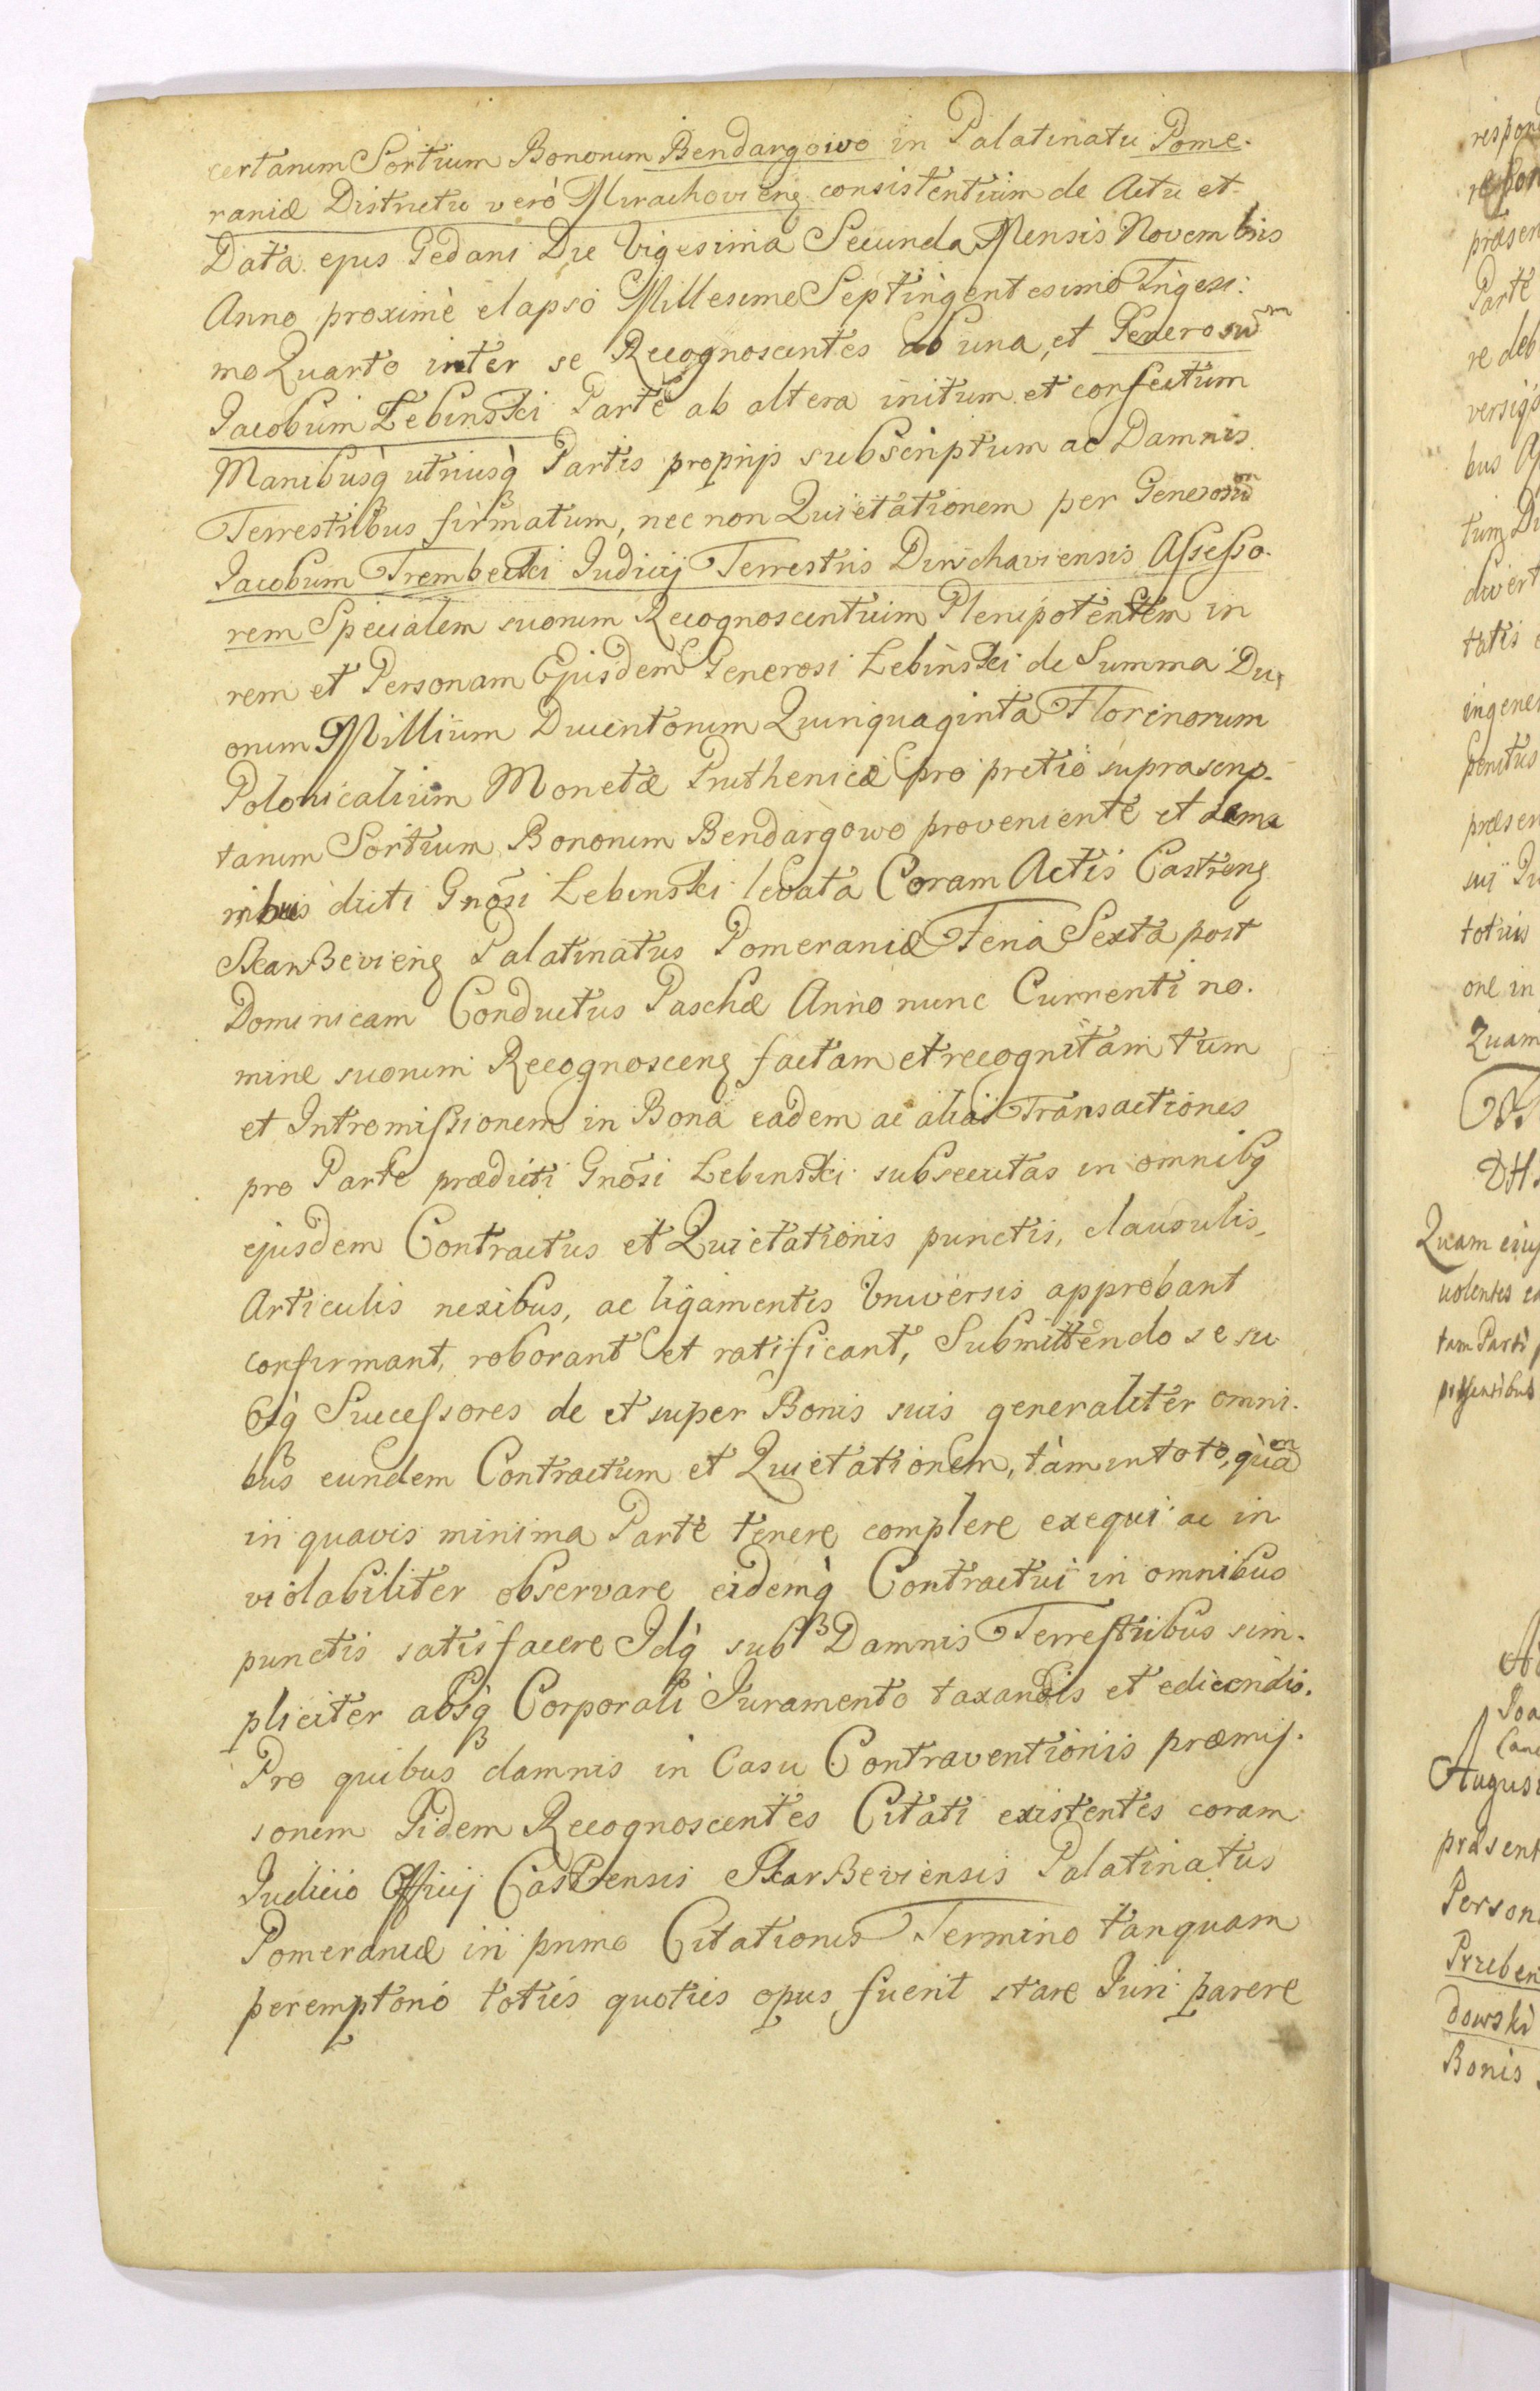 certarum Sortium Bonorum Bendargowo in Palatinatu Pome-
raniæ Districtu verò Mirachovieñ consistentium de Actu et
Data ejus Gedani Die Vigesima Secunda Mensis Novembris
Anno proximè elapso Millesimo Septingentesimo Trigesi:
mo Quarto inter se Recognoscentes ab una, et Generosũm
Jacobum Łebinski Parte ab altera initum et confectum
Manibusq́ utriusq́ Partis proprijs subscriptum ac Damnis
Terrestribus firmatum, nec non Quietationem per Generosũm
Jacobum Trembecki Judicij Terrestris Dirschaviensis Assesso-
rem Specialem suorum Recognoscentium Plenipotentem in
rem et Personam Ejusdem Generosi Łebinski de Summa Du,
orum Millium Ducentorum Quinquaginta Florenorum
Polonicalium Monetæ Pruthenicæ pro pretio suprascrip-
tarum Sortium Bonorum Bendargowo proveniente et de ma
nibus dicti Gnõsi Łebinski levata Coram Actis Castreñ
Skarszevieñ Palatinatus Pomeraniæ Feria Sexta post
Dominicam Conductus Paschæ Anno nunc Currenti no-
mine suorum Recognosceñ factam et recognitam tum
et Intromissionem in Bona eadem ac alias Transactiones
pro Parte prædicti Gnõsi Łebinski subsecutas in omnibq
ejusdem Contractus et Quietationis punctis, clausulis,
Articulis nexibus, ac ligamentis Universis approbant
confirmant, roborant et ratificant, Submittendo se su
osq́ Successores de et super Bonis suis generaliter omni-
bus eundem Contractum et Quietationem, tàm in toto, quãm
in quavis minima Parte tenere complere exequi ac in
violabiliter observare eidemq́ Contractui in omnibus
punctis satisfacere Idq́ sub Damnis Terrestribus sim-
pliciter absq́ Corporali Juramento taxandis et edicendis.
Pro quibus damnis in Casu Contraventionis præmis-
sorum Iidem Recognoscentes Citati existentes coram
Judicio Officij Castrensis Skarszeviensis Palatinatus
Pomeraniæ in primo Citationis Termino tanquam
peremptorio toties quoties opus fuerit stare Juri parere